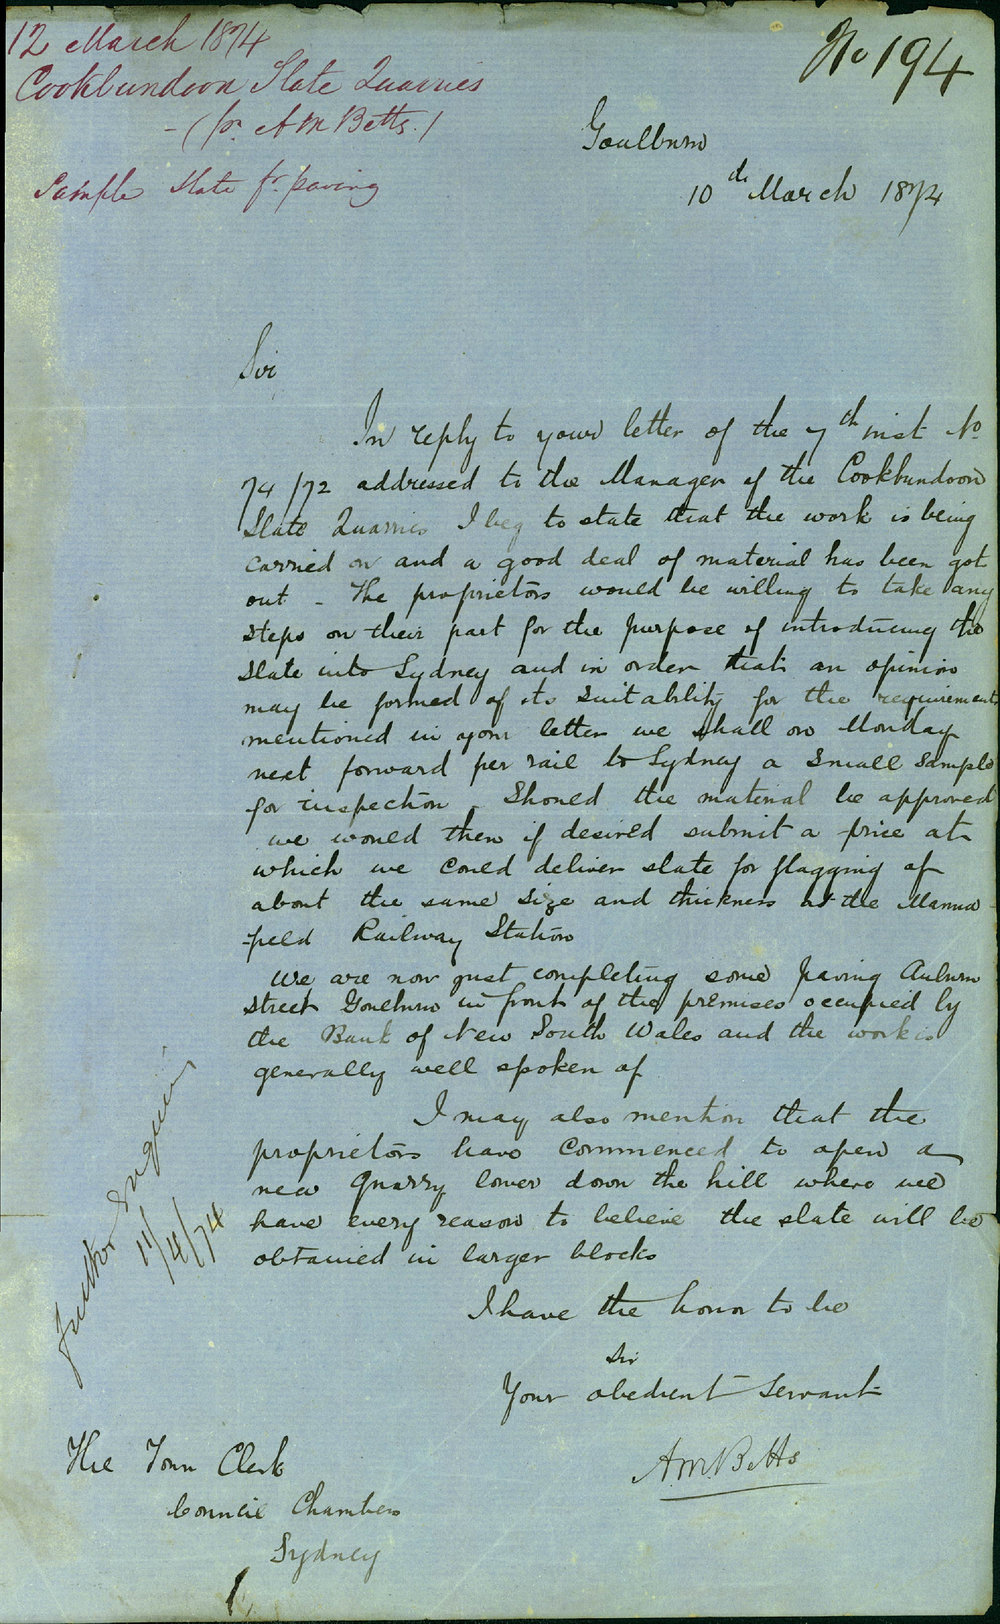 12 March 1874
Cookbundoon Slate Quarries
- (pr. A M Betts.)
Sample Slate fr. paving
No 194
Goulburn
10th March 1874
Sir
In reply to your letter of the 7th inst No
74/72 addressed to the Manager of the Cookbundoon
Slate Quarries I beg to state that the work is being
carried on and a good deal of material has been got
out - The proprietors would be willing to take any
steps on their part for the purpose of introducing the
slate into Sydney and in order that an opinion
may be formed of its suitability for the requirements
mentioned in your letter we shall on Monday
next forward per rail to Sydney a small sample
for inspection - Should the material be approved
we would then if desired submit a price at
which we could deliver slate for flagging of
about the same size and thickness as the
-field Railway Station
We are now just completing some paving Auburn
Street Goulburn in front of the premises occupied by
the Bank of New South Wales and the work is
generally well spoken of
I may also mention that the
proprietors have commenced to open a
new quarry lower down the hill where we
have every reason to believe the slate will be
obtained in larger blocks
I have the honor to be
Sir
Your obedient Servant
A.M. Betts
Further Enquiries
11/4/74
The Town Clerk
Council Chambers
Sydney